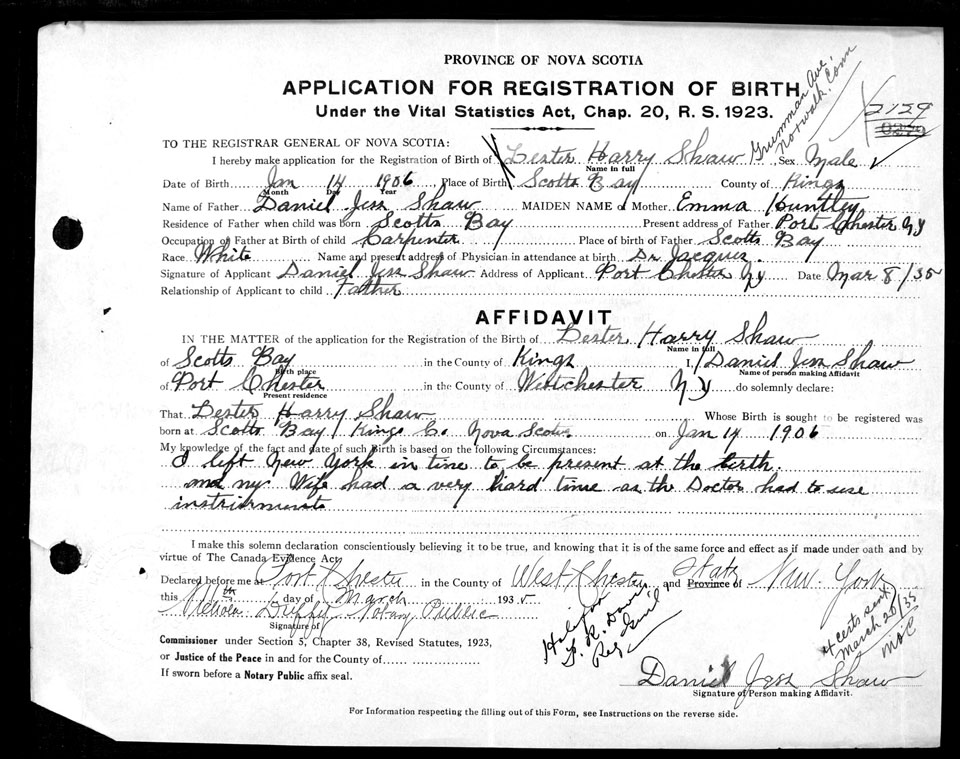 PROVINCE OF NOVA SCOTIA
APPLICATION FOR REGISTRATION OF BIRTH
Under the Vital Statistics Act, Chap. 20, R. S. 1923.
Grumman Ave.
Norwalk. Conn
2129
TO THE REGISTRAR GENERAL OF NOVA SCOTIA:
I hereby make application for the Registration of Birth of Lester Harry Shaw Sex Male
Name in full
Date of Birth Jan 14 1906 Place of Birth Scotts Bay County of Kings
Month Day Year
Name of Father Daniel Jess Shaw MAIDEN NAME of Mother Emma Huntley
Residence of Father when child was born Scotts Bay Present address of Father Port Chester NY
Occupation of Father at Birth of child Carpenter Place of birth of Father Scotts Bay
Race White Name and present address of Physician in attendance at birth Dr Jacques.
Signature of Applicant Daniel Jess Shaw Address of Applicant Port Chester NY Date Mar 8/35
Relationship of Applicant to child Father
AFFIDAVIT
IN THE MATTER of the application for the Registration of the Birth of Lester Harry Shaw
Name in full
of Scotts Bay in the County of Kings I, Daniel Jess Shaw
Birth place Name of person making Affidavit
of Port Chester in the County of Westchester NY do solemnly declare:
Present residence
That Lester Harry Shaw Whose Birth is sought to be registered was
born at Scotts Bay Kings Co. Nova Scotia on Jan 14 1906
My knowledge of the fact and date of such Birth is based on the following Circumstances:
I left New York in time to be present at the birth.
and my Wife had a very hard time as the Doctor had to use
instruments
I make this solemn declaration conscientiously believing it to be true, and knowing that it is of the same force and effect as if made under oath and by
virtue of The Canada Evidence Act.
Declared before me at Port Chester in the County of West Chester and State Province of New York
this th day of March 1935
Duffy Notary Public
Signature of
Commissioner under Section 5, Chapter 38, Revised Statutes, 1923,
or Justice of the Peace in and for the County of
If sworn before a Notary Public affix seal.
Halifax
Reg
4 certs sent
March 20/35
Daniel Jess Shaw
Signature of Person making Affidavit.
For Information respecting the filling out of this Form, see Instructions on the reverse side.